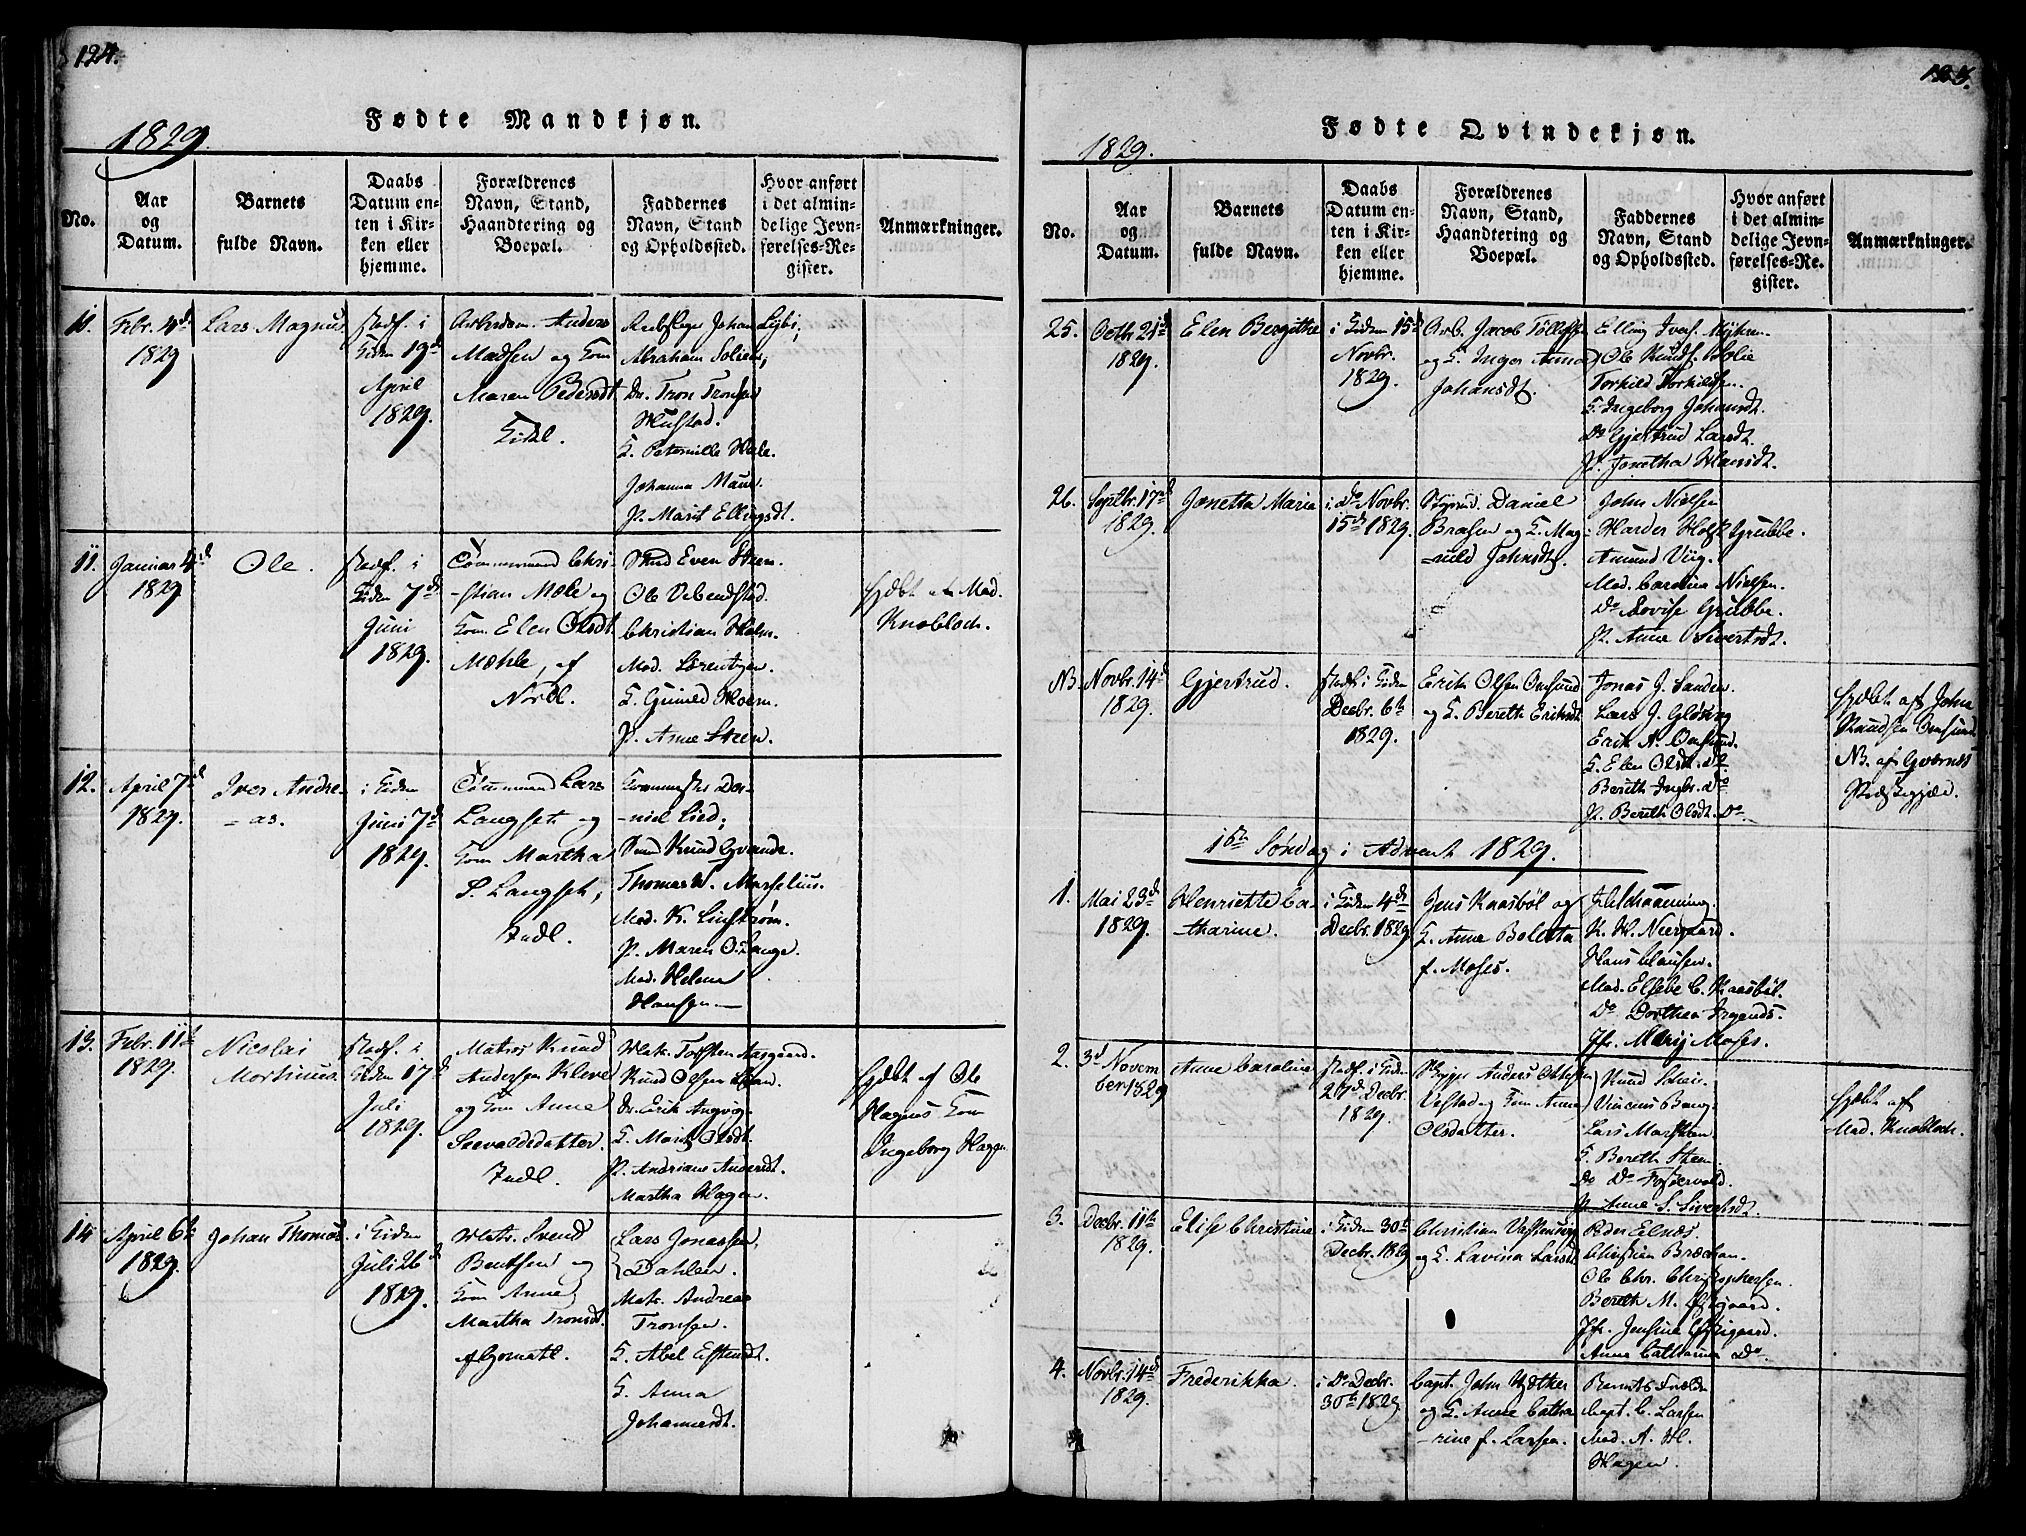 124.
Fødte Mandkjøn.
1829.
No.
Aar
og
Datum.
Barnets
fulde Navn.
Daabs
Datum en-
ten i Kir-
ken eller
hjemme.
Forældrenes
Navn, Stand,
Haandtering og
Boepæl.
Faddernes
Navn, Stand
og Opholdssted.
Hvor anført
i det almin-
delige Jevn-
førelses-Re-
gister.
Anmærkninger.
10.
Febr. 4d
1829
Lars Magnus
Stadf. i
Kirken 19d
April
1829.
Arbeidsm. Anders
Madsen og Kom
Maren Pedersdt
Johan Lybi,
Abraham Solien,
Dr. Tron Tronsen
Hustad.
K. Peternille Wele.
Johanna Maur.
P. Marit Ellingsdt.
11.
Januar 4d
1829
Ole.
Stadf. i
Kirken 7de
Juni
1829.
Chri-
stian Mæle og
Kom. Elen Olsdt
Mæhle, af
Nordl.
Even Steen.
Ole Vebenstad.
Christian Holm.
Mad. Lorentzen.
K. Gunild Holm.
P. Anne Steen.
Hjdbt af Mad.
Knobloch.
12.
April 7d
1829.
Iver Andre-
- as.
i Kirken
Juni 7d
1829.
Lars
Langset og
Kom Martha
P. Langset,
Indl.
Da-
-niel Lied,
Knud Qvande.
Thomas W. Marselius.
Mad. K. Linstrøm.
P. Maren O. Lange.
Mad. Helena
Hansen.
13.
Febr. 11te
1829.
Nicolai
Mortinus.
Stadf. i
Kirken 17d
Juli
1829.
Matros Knud
Andersen Kleve
og Kom Anne
Sevaldsdatter
Indl.
Matr. Torsten Aasgaard.
Knud Olsen
Dr. Erik Angvig.
K. Marit Olsdt.
P. Andriane Andersdt.
Martha Hagen.
Hjdbt af Ole
Hagens Kom
Ingeborg Hagen
14
April 6te
1829.
Johan Thomas.
i Kirken
Juli 26d
1829.
Matr. Svend
Bentsen og
Kom Anne
Martha Tronsdt.
Lars Jonassen,
Dahlen.
Matr. Andreas
Tronsen.
K. Abel Estensdt.
K. Anna
Johannesdt.
125.
Fødte Qvindekjøn.
1829.
No.
Aar
og
Datum.
Barnets
fulde Navn.
Daabs
Datum en-
ten i Kir-
ken eller
hjemme.
Forældrenes
Navn, Stand,
Haandtering og
Boepæl.
Faddernes
Navn, Stand
og Opholdssted.
Hvor anført
i det almin-
delige Jevn-
førelses-Re-
gister.
Anmærkninger.
25.
Octbr. 21de
1829.
Elen Bergithe
i Kirken 15d
Novbr.
1829.
Arb. Jacob Tollefsen
og K. Inger Anna
Johansdt.
Elling Ivers. Myhren.
Ole Knuds. Bolie
Torkild Torkildsen.
K. Ingeborg Johansdt.
Do Gjertrud Larsdt.
P. Jonetha Hansdt.
26.
Septbr. 17de
1829.
Jonetta Maria
i Do Novbr.
15d 1829.
Daniel
Braset og K. Mag-
-nild Johnsdt.
John Nielsen
Harder Holst Grubbe.
Amund Viig.
Mad. Carolina Nielsen.
Do Lovise Grubbe.
P. Anne Sivertsdt.
NB.
Novbr. 14d
1829.
Gjertrud.
Stadf. i Kirken
Decbr. 6te
1829.
Erik Olsen Omsund
og K. Bereth Eriksdt
Jonas J. Sanden.
Lars J. Gløsvog
Erik A. Omsund.
K. Elen Olsdt. do
Bereth Ingbr. do
P. Bereth Olsdt. Do
Hjdbt af John
Knudsen Omsund
NB. af Qvernæs
Præstegjæld.
1ste Søndag i Advent 1829.
1.
Mai 23de
1829.
Henriette Ca-
-tharine.
i Kirken 4de
Decbr. 1829
Jens Kaasbøl og
K. Anne Boletta
f. Moses.
K. W. Neergaard.
Hans Clausen.
Mad. Elseve C. Kaasbøl.
Do Dorthea Irgends.
Jfr. Marij Moses.
2.
3d Novem
ber 1829
Anne Caroline
Stadf. i Kirken
27d Decbr.
1829.
Anders Ottesen
Vestad og Kom Anne
Olsdatter.
Knud Schei.
Vincens Bang.
Lars Marsteen
K. Bereth Steen.
do Do Fosterwold.
P. Anne S. Sivertsdt.
Hjdbt af
Mad. Knobloch.
3.
Decbr. 11te
1829.
Elise Christine
i Kirken 30te
Decbr. 1829
Christian
og K. Lavina Larsdt
Peder Elnæs.
Christian Bræchan.
Ole Chr. Christophersen.
Bereth M. Ørsgaard.
Jfr. Jensine Ørsgaard.
Anne Catharina Do
4.
Novbr. 14de
1829.
Frederikka.
i Do Decbr.
30te 1829
Capt. John Yttker
og K. Anne Catha
-rine f. Larsen.
Barnets Forældre
Capt. C. Larsen
Mad. A. H.
Hagen.